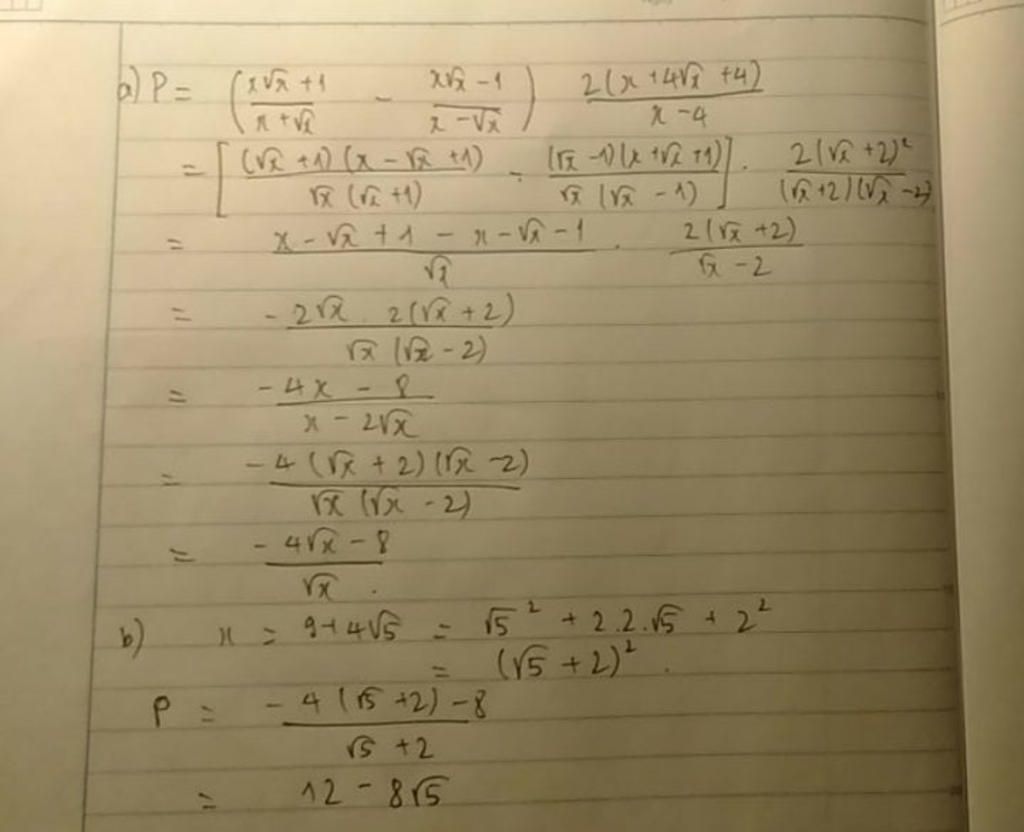 a) P = (x√x + 1 / x + √x - x√x - 1 / x - √x) 2(x + 4√x + 4) / x - 4
= [(√x + 1)(x - √x + 1) / √x(√x + 1) - (√x - 1)(x + √x + 1) / √x(√x - 1)] . 2(√x + 2)² / (√x + 2)(√x - 2)
= x - √x + 1 - x - √x - 1 / √x . 2(√x + 2) / √x - 2
= - 2√x . 2(√x + 2) / √x(√x - 2)
= - 4x - 8 / x - 2√x
= - 4(√x + 2)(√x - 2) / √x(√x - 2)
= - 4√x - 8 / √x .
b) x = 9 + 4√5 = √5² + 2.2.√5 + 2²
= (√5 + 2)² .
P = - 4(√5 + 2) - 8 / √5 + 2
= 12 - 8√5